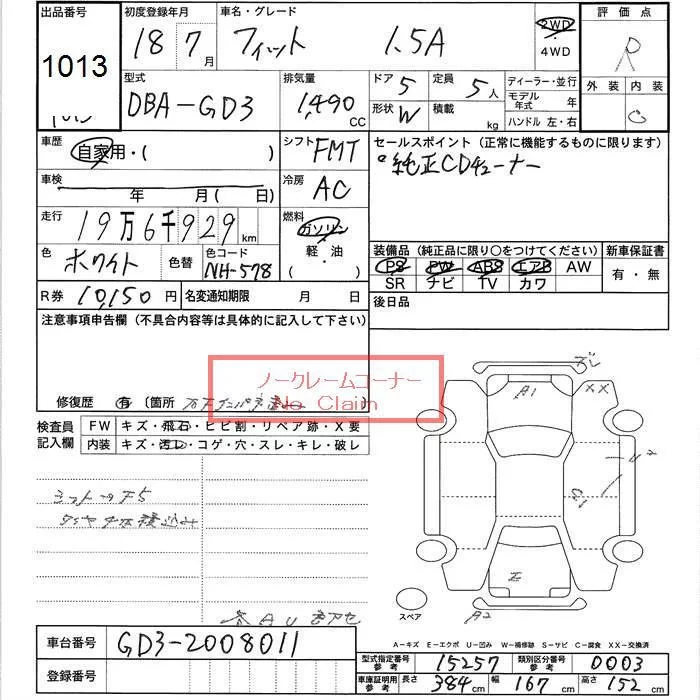 出品番号 初度登録年月 車名・グレード 評価点
1013 18 7月 フィット 1.5A 2WD 4WD R
型式 排気量 ドア 5 定員 5人 ディーラー・並行 外装 内装
DBA-GD3 1,490 CC 形状 W 積載 kg モデル年式 年 C
ハンドル 左・右
車歴 自家用・( ) シフト FMT セールスポイント(正常に機能するものに限ります)
車検 年 月( 日) 冷房 AC 純正CDチューナー
走行 19万6千929km 燃料 ガソリン
色 ホワイト 色替 色コード NH-578 軽・油 ( )
装備品(純正品に限り○をつけてください) 新車保証書
PS PW ABS エアB AW 有・無
SR ナビ TV カワ
R券 10,150円 名変通知期限 月 日 後日品
注意事項申告欄(不具合内容等は具体的に記入して下さい)
ノークレームコーナー
No Claim
修復歴 有 (箇所
検査員記入欄 FW キズ・飛石・ヒビ割・リペア跡・X要
内装 キズ・汚レ・コゲ・穴・スレ・キレ・破レ
A1 XX
シフトF5
A2
スペア
A-キズ E-エクボ U-凹み W-補修跡 S-サビ C-腐食 XX-交換済
車台番号 GD3-2008011
登録番号
型式指定番号 参考 15257 類別区分番号 参考 0003
車庫証明用 参考 長さ 384cm 幅 167cm 高さ 152cm